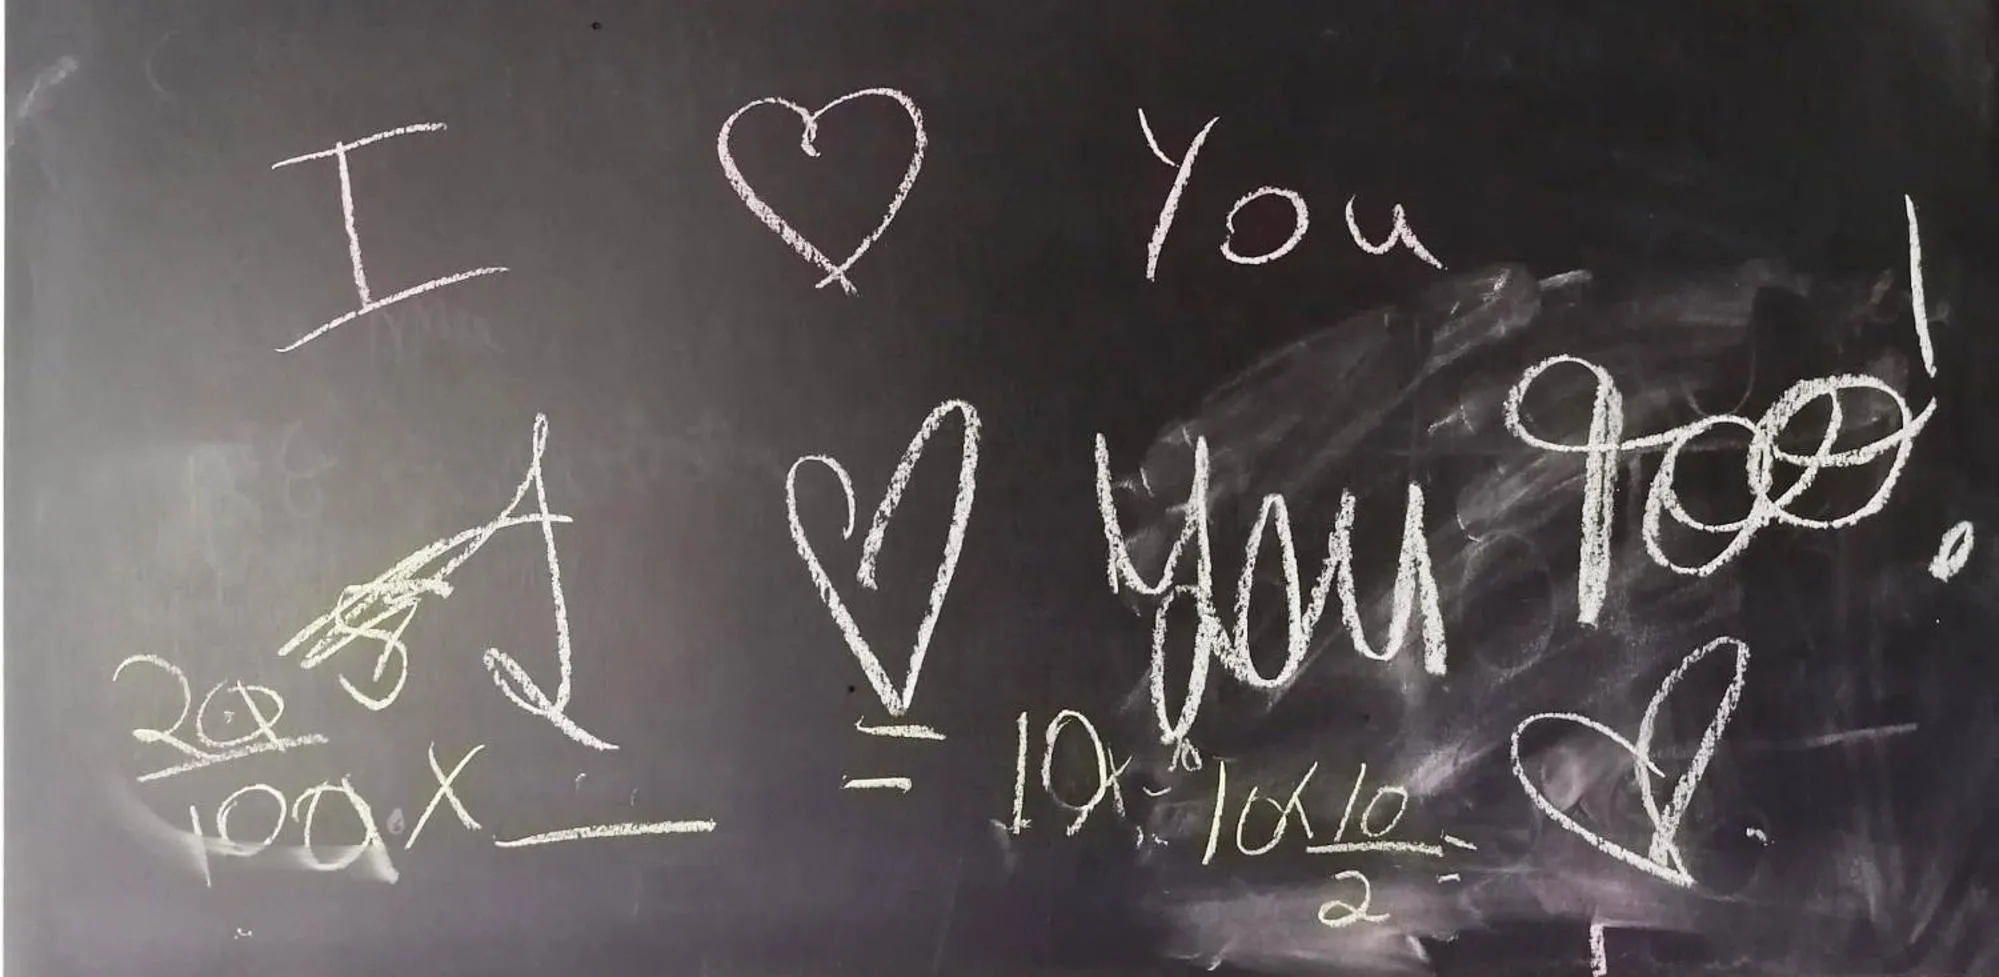 I ♡ You
I ♡ you too!
8
20/100 × __ = 10 10 × 10/2 = ♡